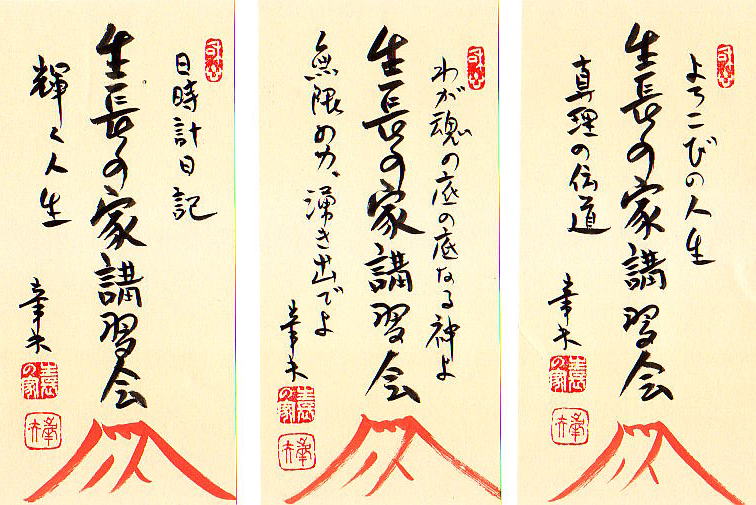 よろこびの人生
生長の家講習会
真理の伝道
幸夫
わが魂の底の底なる神よ
生長の家講習会
無限の力、湧き出でよ
幸夫
日時計日記
生長の家講習会
輝く人生
幸夫